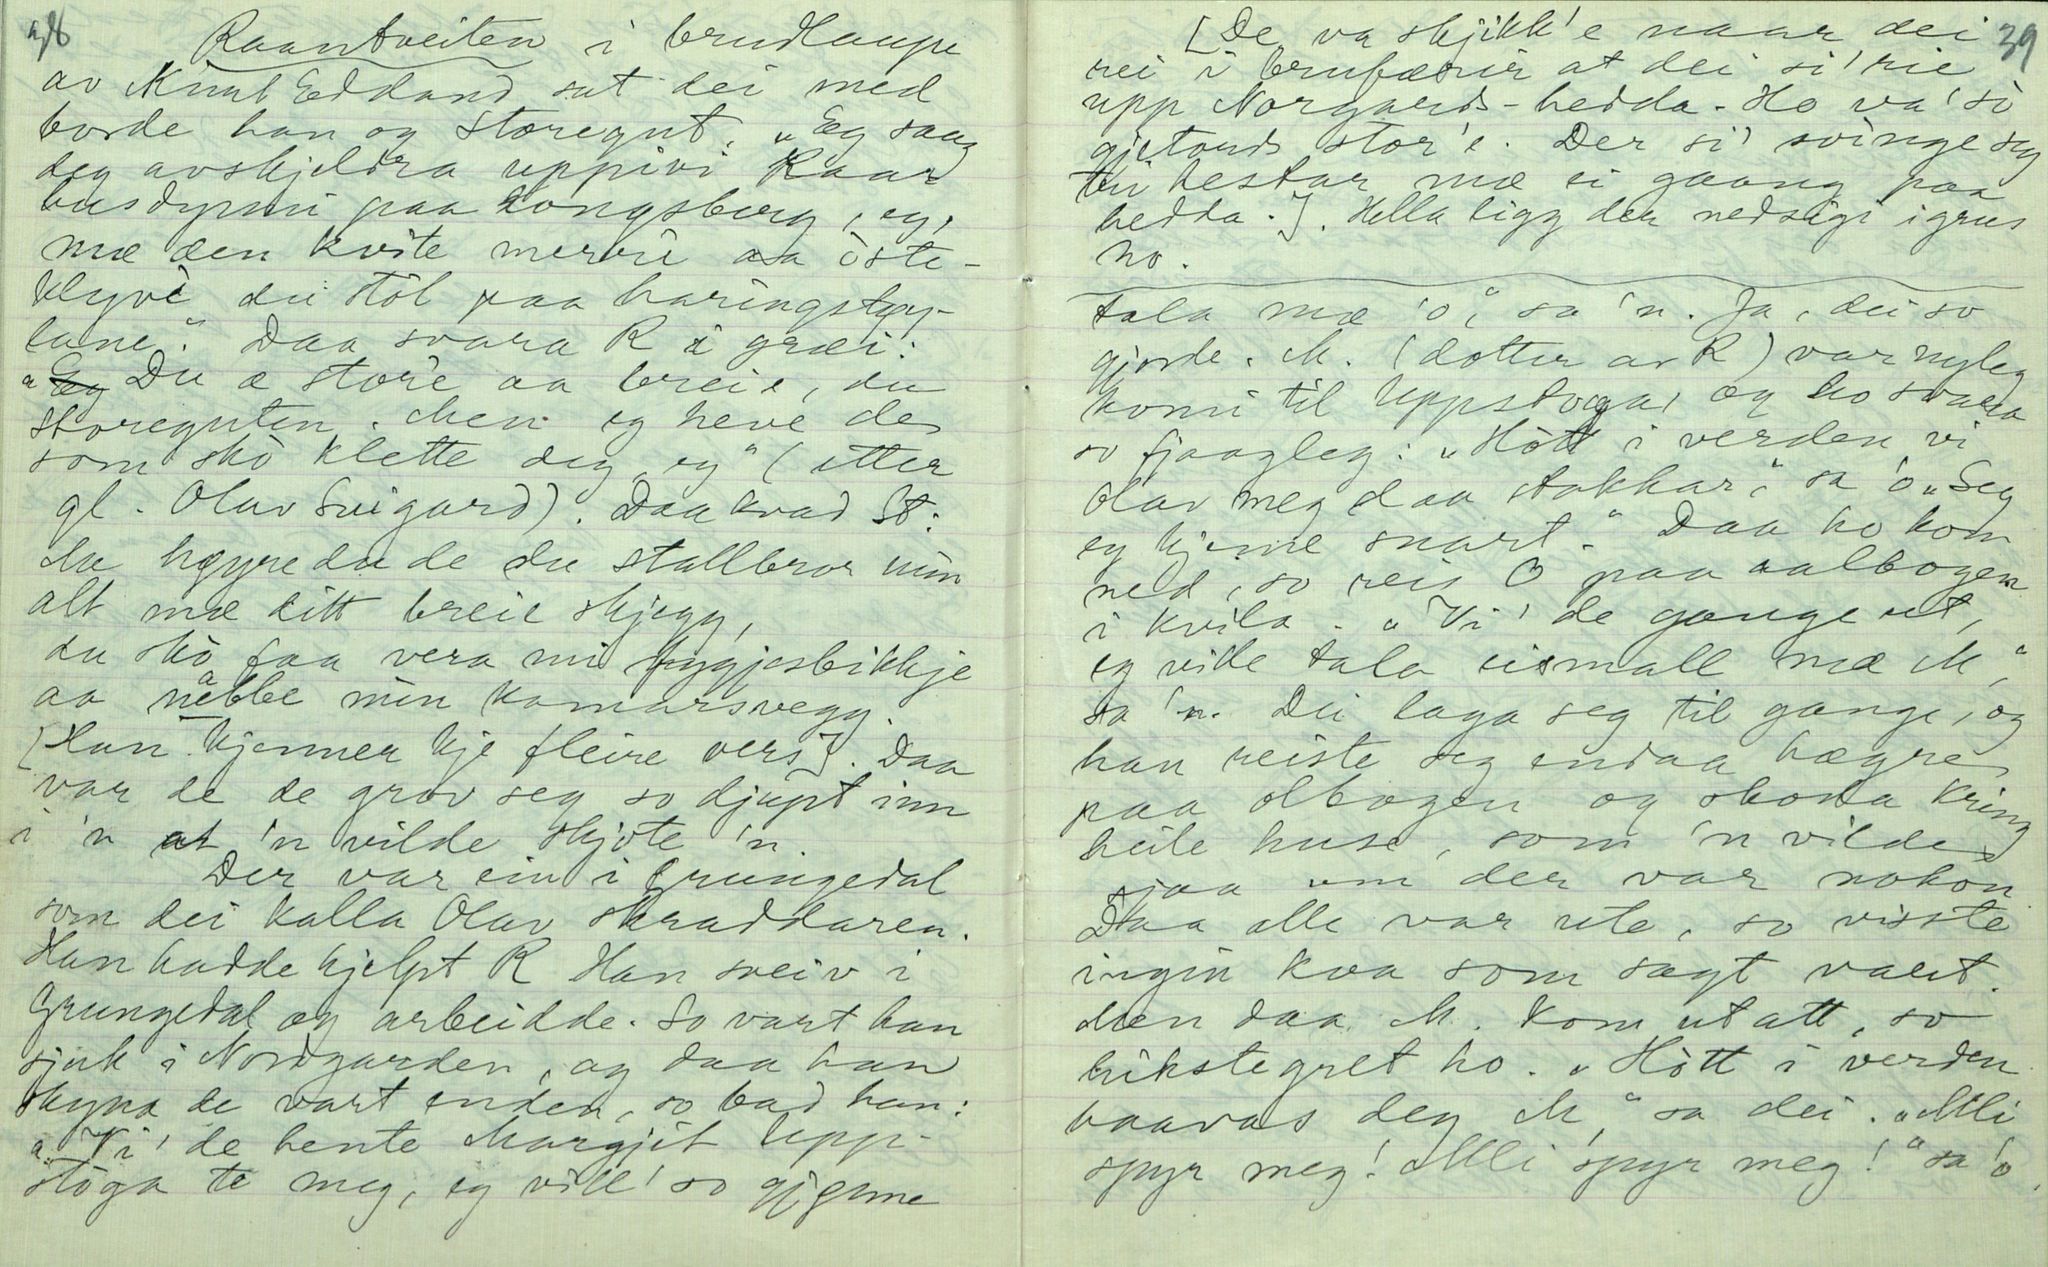 38
Raantveiten i brudlaupe
av Knut Edland sat dei med
borde han og Storegut. „Eg saag
deg avskjeldra uppivi Raar
husdyrnui paa Kongsberg, eg,
mæ den kvite merrii aa òste-
klyvè du stòl paa haringstøy-
lane." Daa svara R i græi:
„Du æ stor'e aa brei'e, du
Storeguten. Men eg heve de
som skò klette deg, eg" (etter
gl. Olav Svigard). Daa kvad St:
Au høyre du de du stallbror min
alt mæ ditt breie skjegg,
du skò faa vera mi hyggjesbikkje
aa nebbe min komarsvegg.
[Han kjenner kje fleire vers]. Daa
var de de grov seg so djupt inn
i 'n at 'n vilde skjote 'n.
Der var ein i Grungedal
som dei kalla Olav skraddaren.
Han hadde hjelpt R Han sveiv i
Grungedal og arbeidde. So vart han
sjuk i Nordgarden, og daa han
skyna de vart enden, so bad han:
„Vi' de hente Margjit Upp-
stòga te meg, eg vill' so gjønne
39
[De va skjikk'e naar dei
rei i brufærir at dei si' rie
upp Norgards-hedda. Ho va' so
gjetands stor'e. Der si' svinge seg
tri hestar mæ ei gaang paa
hedda.]. Hella ligg der nedsigi i grus
no.
tala mæ 'o," sa 'n. Ja, dei so
gjorde. M. (dotter av R) var nyleg
komi til Uppstoga, og ho svara
so fjaagleg: „Hòtt i verden vi
Olav meg daa stakkar," sa 'o „Seg
eg kjeme snart." Daa ho kom
ned, so reis O paa aalbogen
i kvila. „Vi' de gange ut,
eg ville tala eismall mæ M",
sa 'n. Dei laga seg til gange, og
han reiste seg endaa høgre
paa olbogen og skoda kring
heile huse, som 'n vilde
sjaa um der var nokon
Daa alle var ute, so visste
ingin kva som sagt vart.
Men daa M. kom ut att, so
hikstegret ho. „Hòtt i verden
baavas deg M," sa dei. „Alli
spyr meg! Alli spyr meg!" sa 'o.